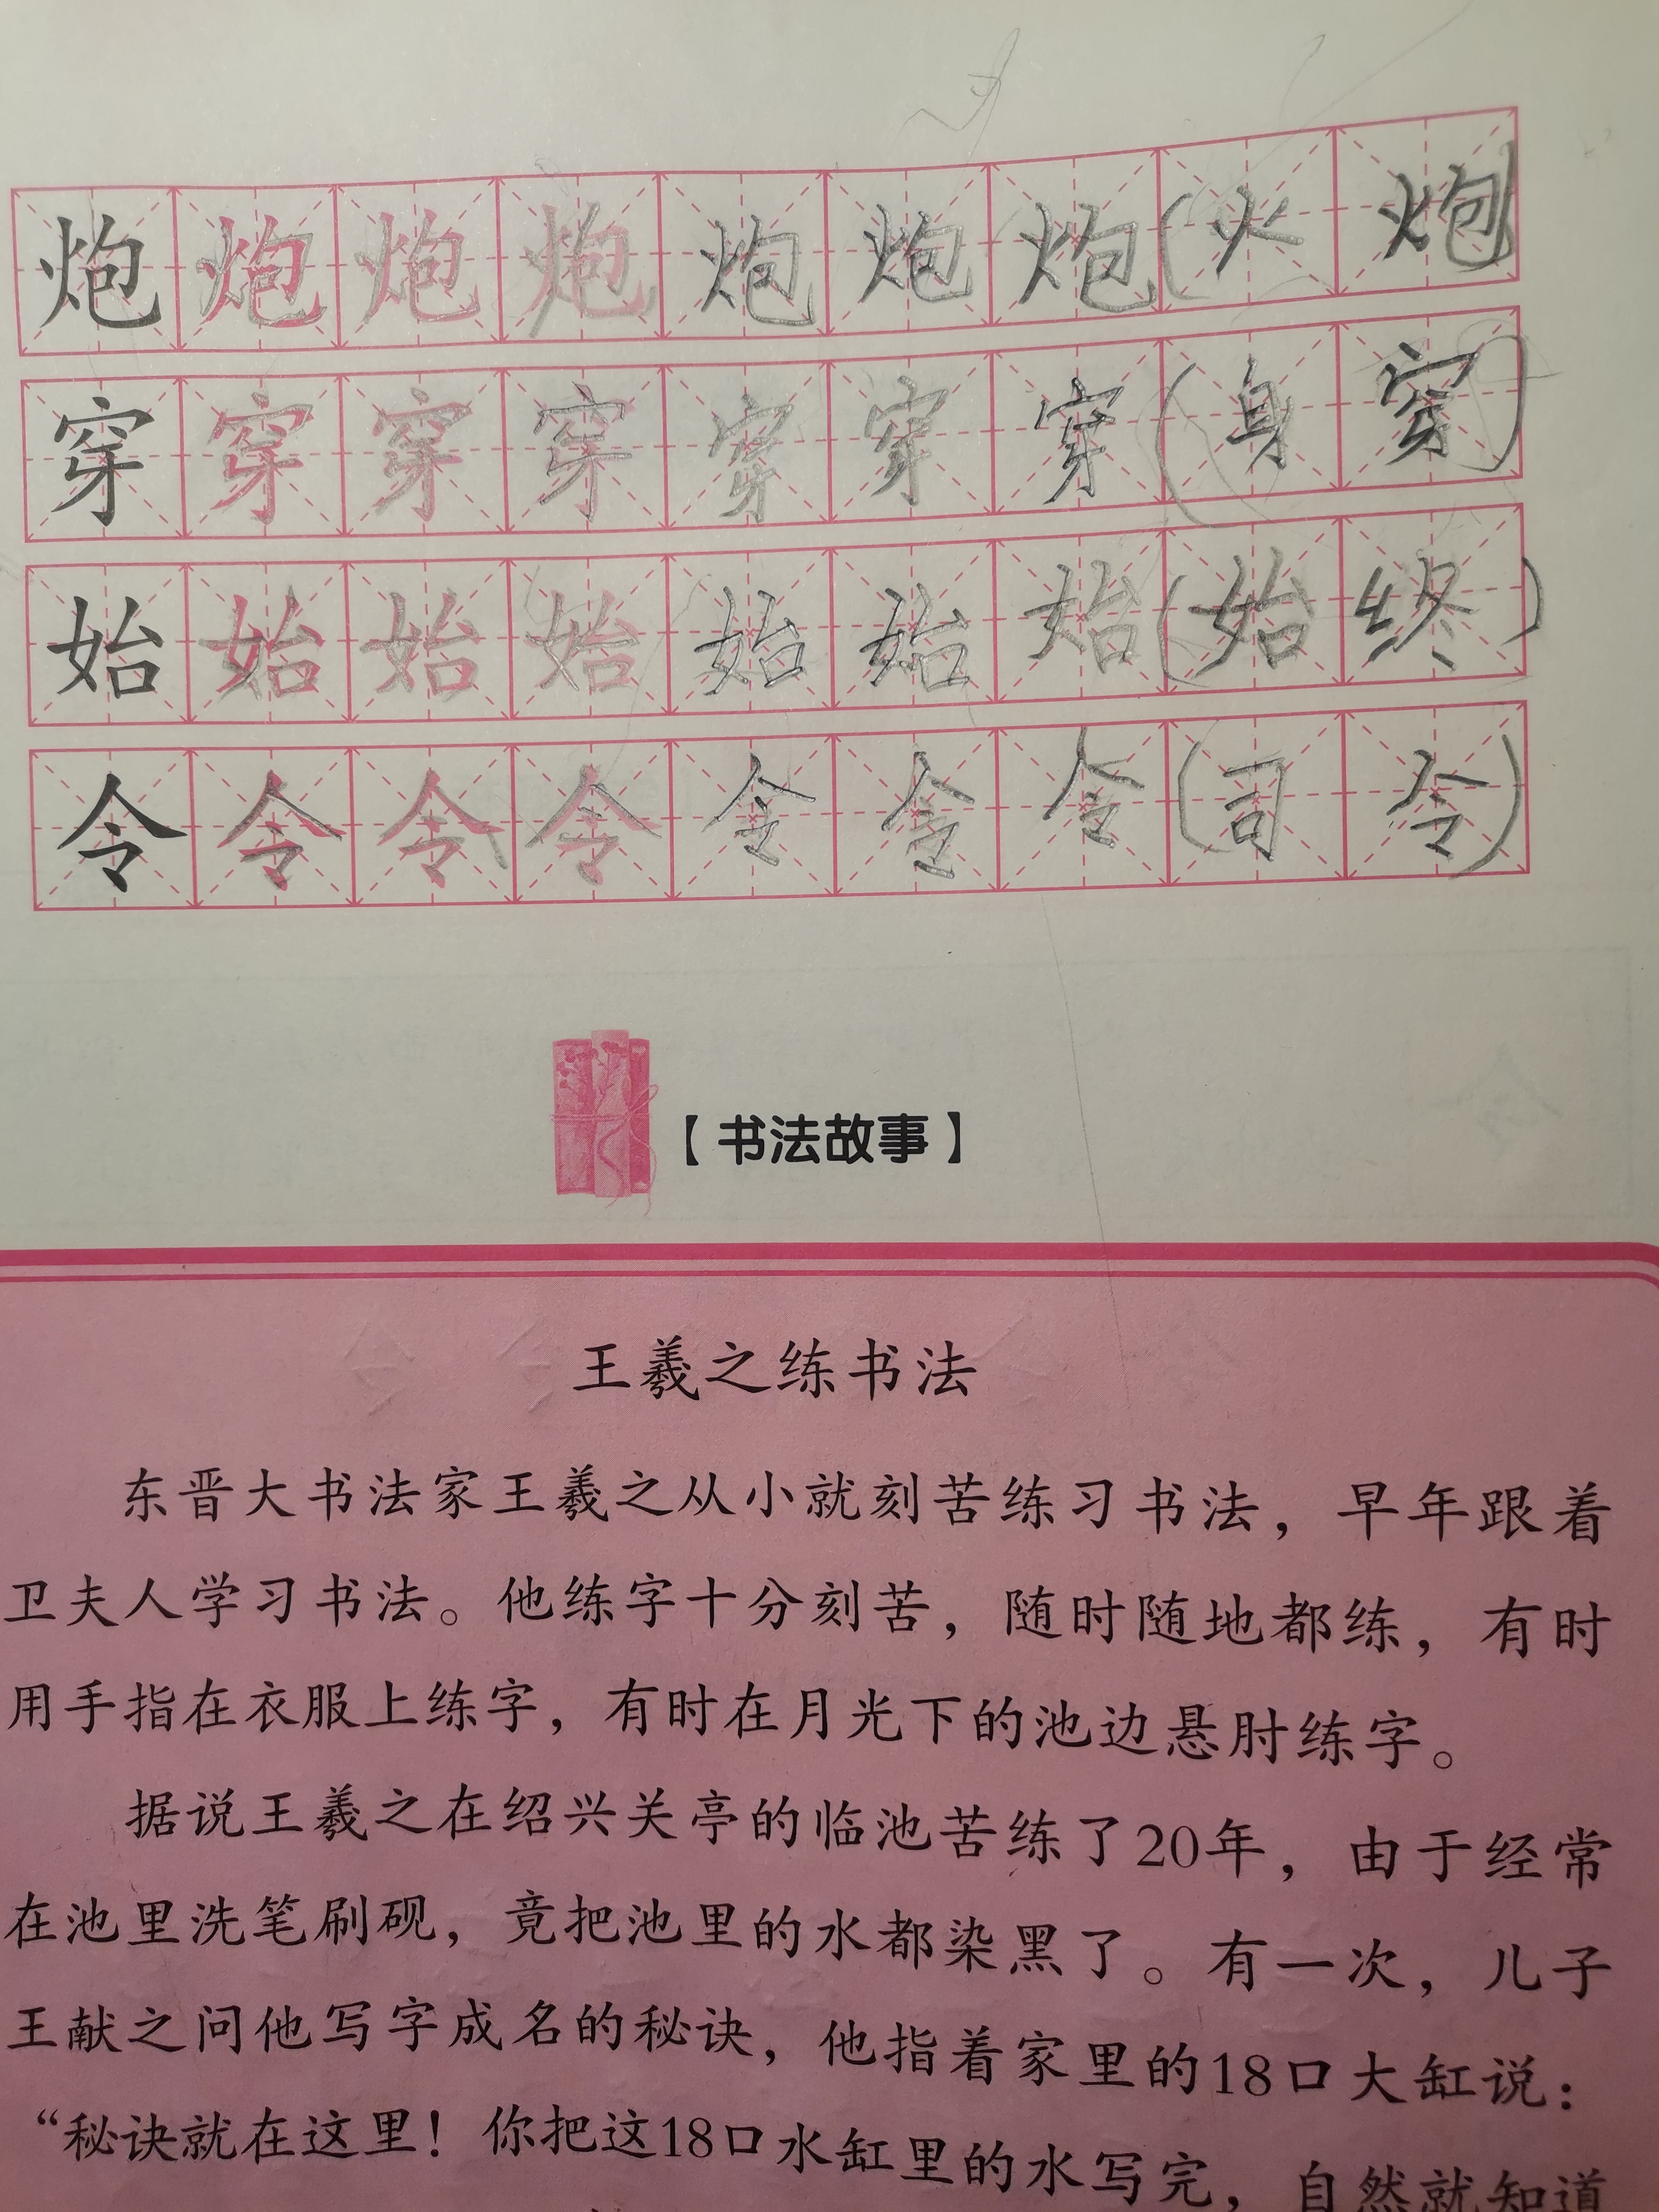 炮炮炮炮炮炮炮(火炮)
穿穿穿穿穿穿穿(身穿)
始始始始始始始(始终)
令令令令令令令(司令)
【书法故事】
王羲之练书法
东晋大书法家王羲之从小就刻苦练习书法，早年跟着
卫夫人学习书法。他练字十分刻苦，随时随地都练，有时
用手指在衣服上练字，有时在月光下的池边悬肘练字。
据说王羲之在绍兴关亭的临池苦练了20年，由于经常
在池里洗笔刷砚，竟把池里的水都染黑了。有一次，儿子
王献之问他写字成名的秘诀，他指着家里的18口大缸说：
“秘诀就在这里！你把这18口水缸里的水写完，自然就知道